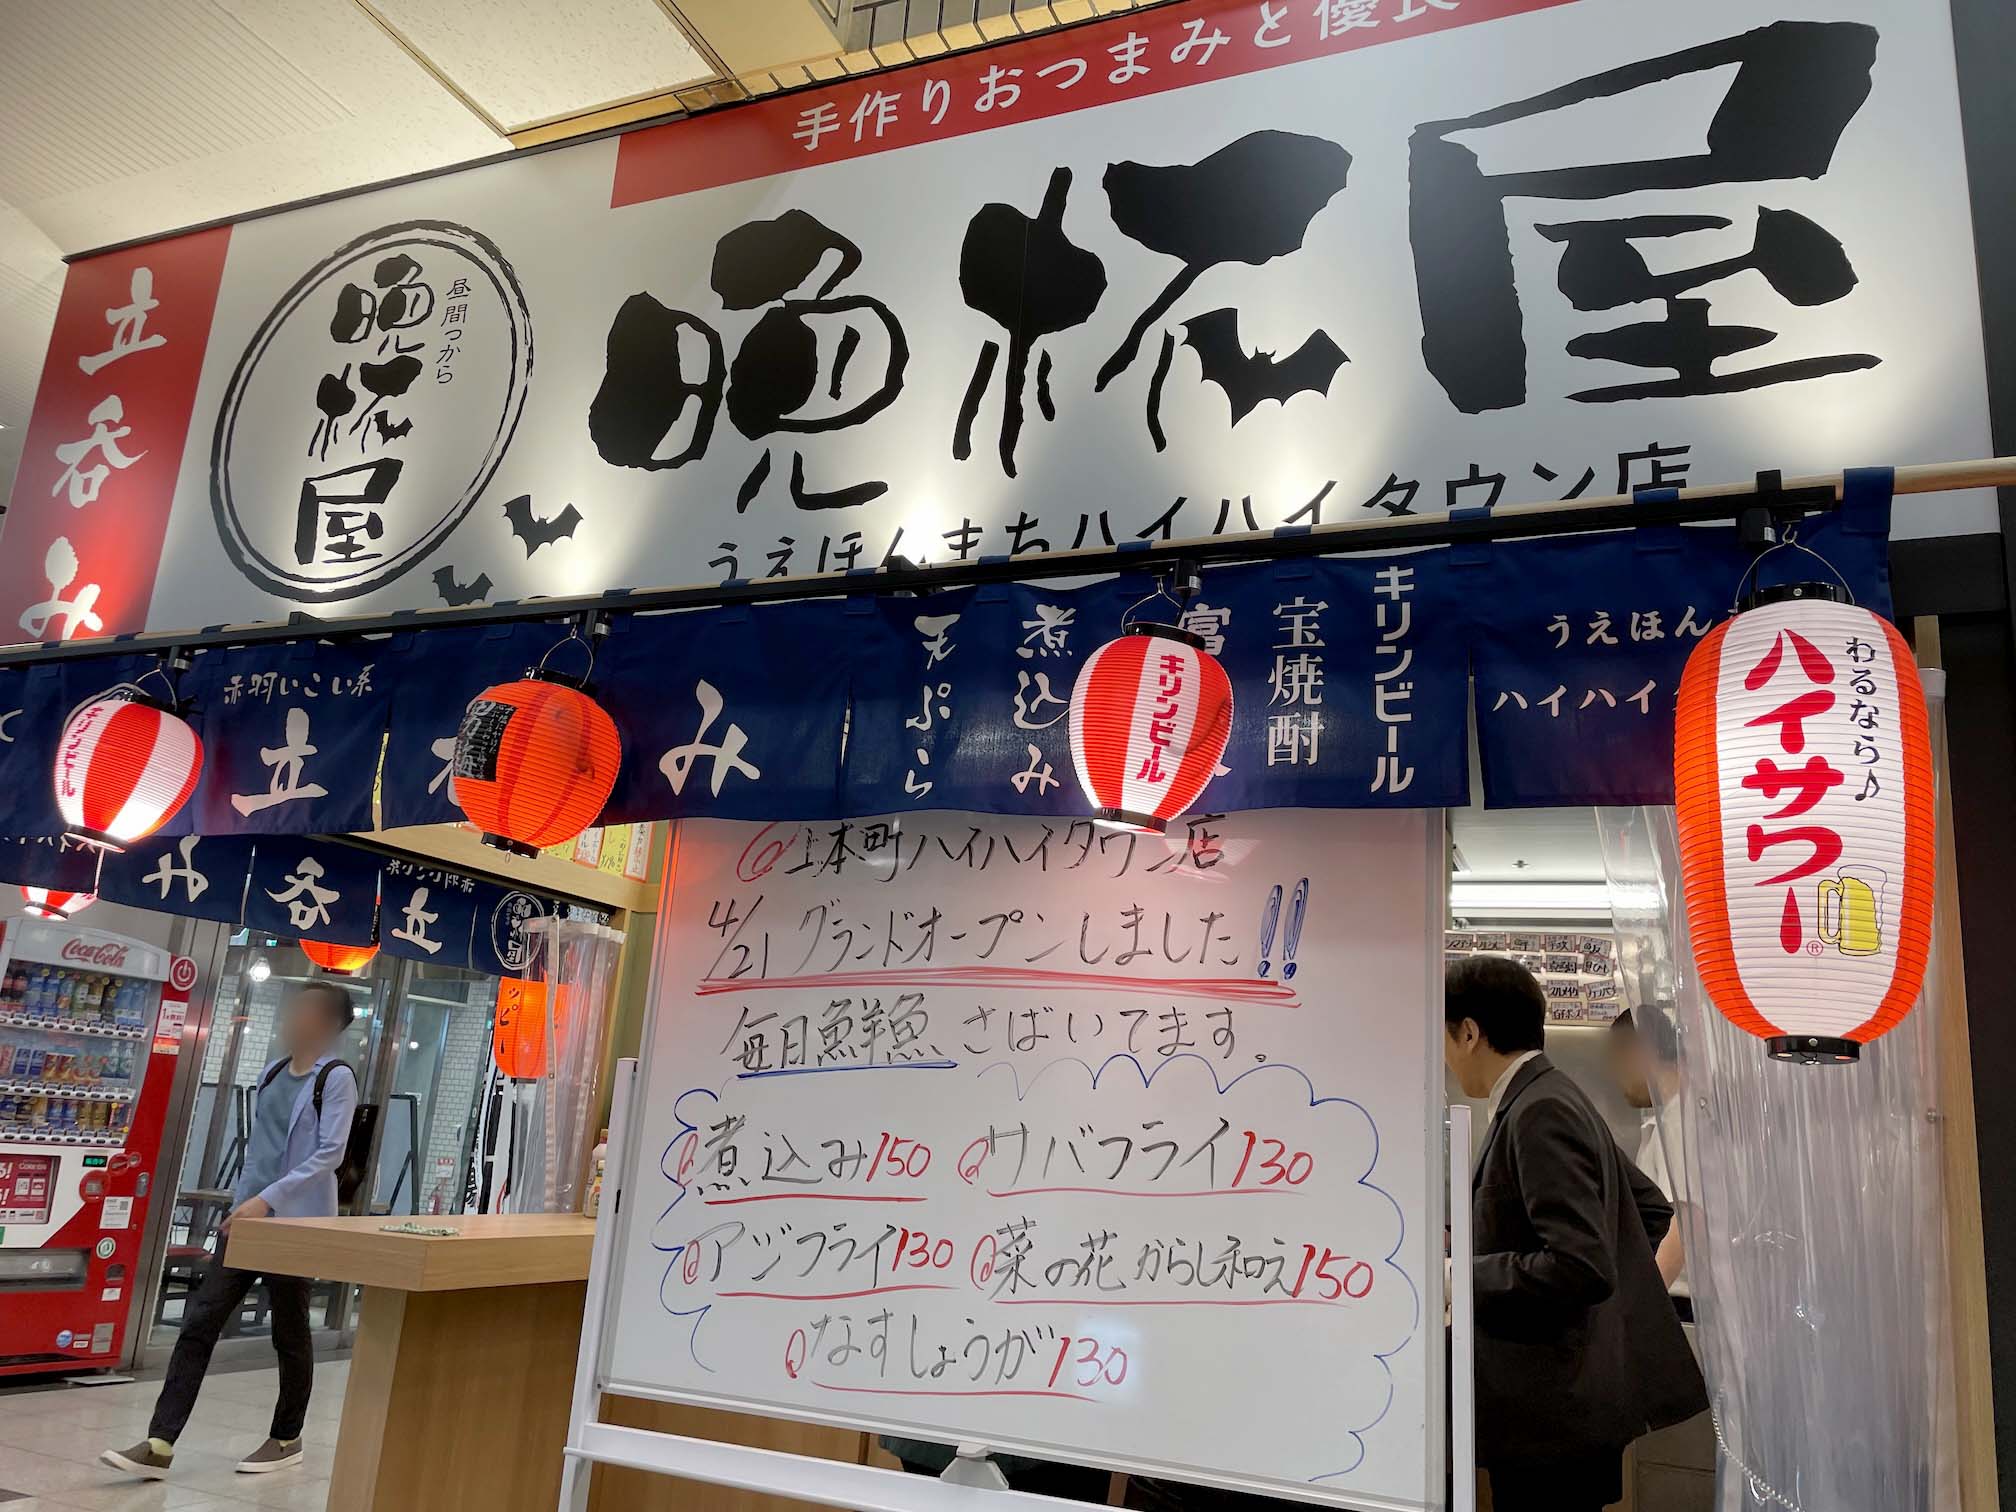 手作りおつまみと優良
立呑み
昼間っから
晩杯屋
晩杯屋
うえほんまちハイハイタウン店
赤羽いこい系
立
み
天ぷら
煮込み
宝焼酎
キリンビール
うえほん
ハイハイ
キリンビール
キリンビール
わるなら♪
ハイサワー®
立
呑
み
Coca-Cola
ッピー
@上本町ハイハイタウン店
4/21 グランドオープンしました!!
毎日鮮魚さばいてます。
煮込み150
サバフライ130
アジフライ130
菜の花からし和え150
なすしょうが130